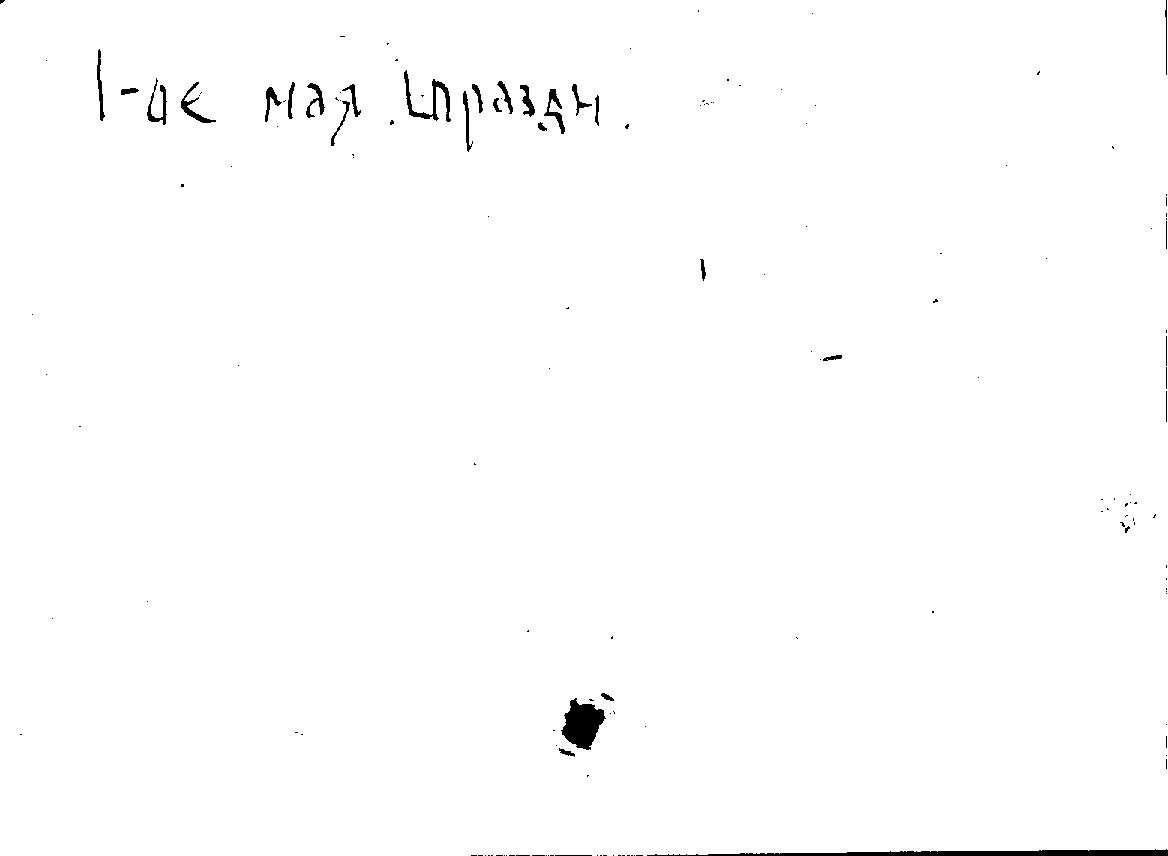 1-ое мая. [праздн.